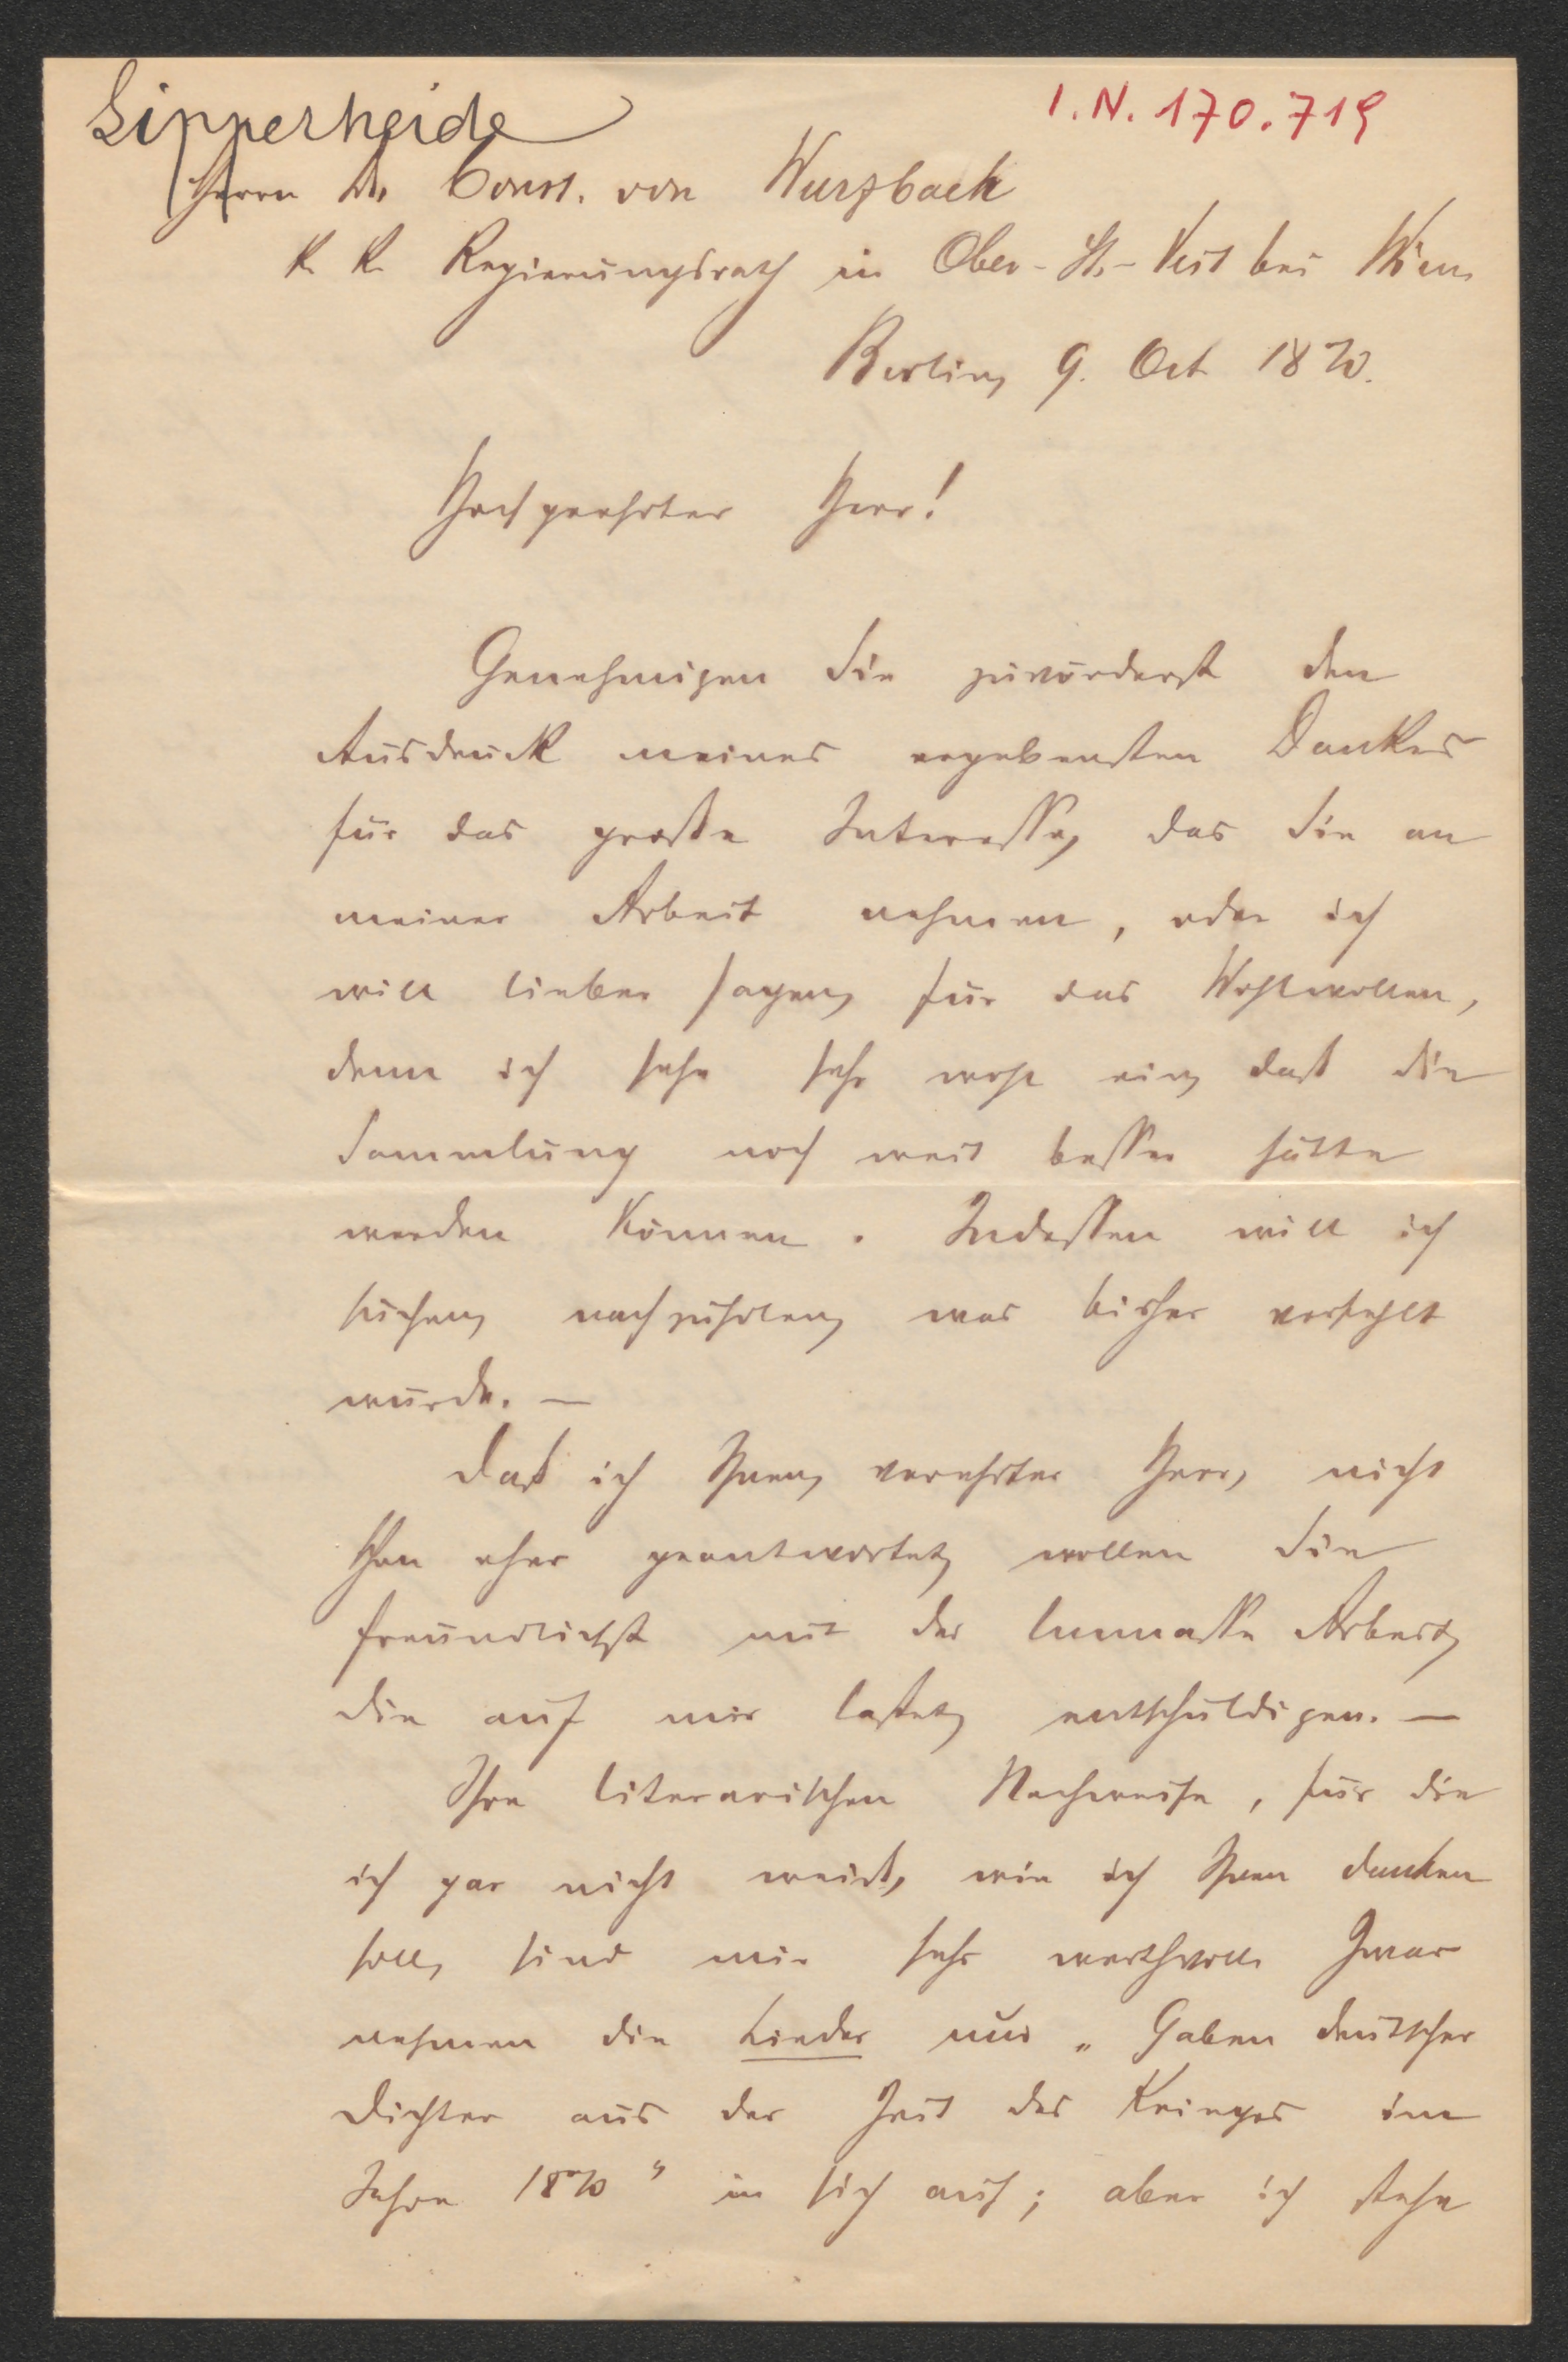 Lipperheide
I.N. 170.719
Herrn Dr Const. von Wurzbach
K. K. Regierungsrath in Ober-St.-Veit bei Wien
Berlin, 9. Oct 1870.
Hochgeehrter Herr!
Genehmigen Sie zuvörderst den
Ausdruck meines ergebensten Dankes
für das große Interesse, das Sie an
meiner Arbeit nehmen, oder ich
will lieber sagen, für das Wohlwollen,
denn ich sehe sehr wohl ein, daß die
Sammlung noch weit besser hätte
werden können. Indessen will ich
suchen, nachzuholen, was bisher verfehlt
wurde. —
Daß ich Ihnen, verehrter Herr, nicht
schon eher geantwortet, wollen Sie
freundlichst mit der Arbeit,
die auf mir lastet, entschuldigen. —
Ihre literarischen Nachweise, für die
ich gar nicht weiß, wie ich Ihnen danken
soll, sind mir sehr werthvoll. Zwar
nehmen die Lieder nur „Gaben deutscher
Dichter aus der Zeit des Krieges im
Jahre 1870" in sich auf; aber ich stehe